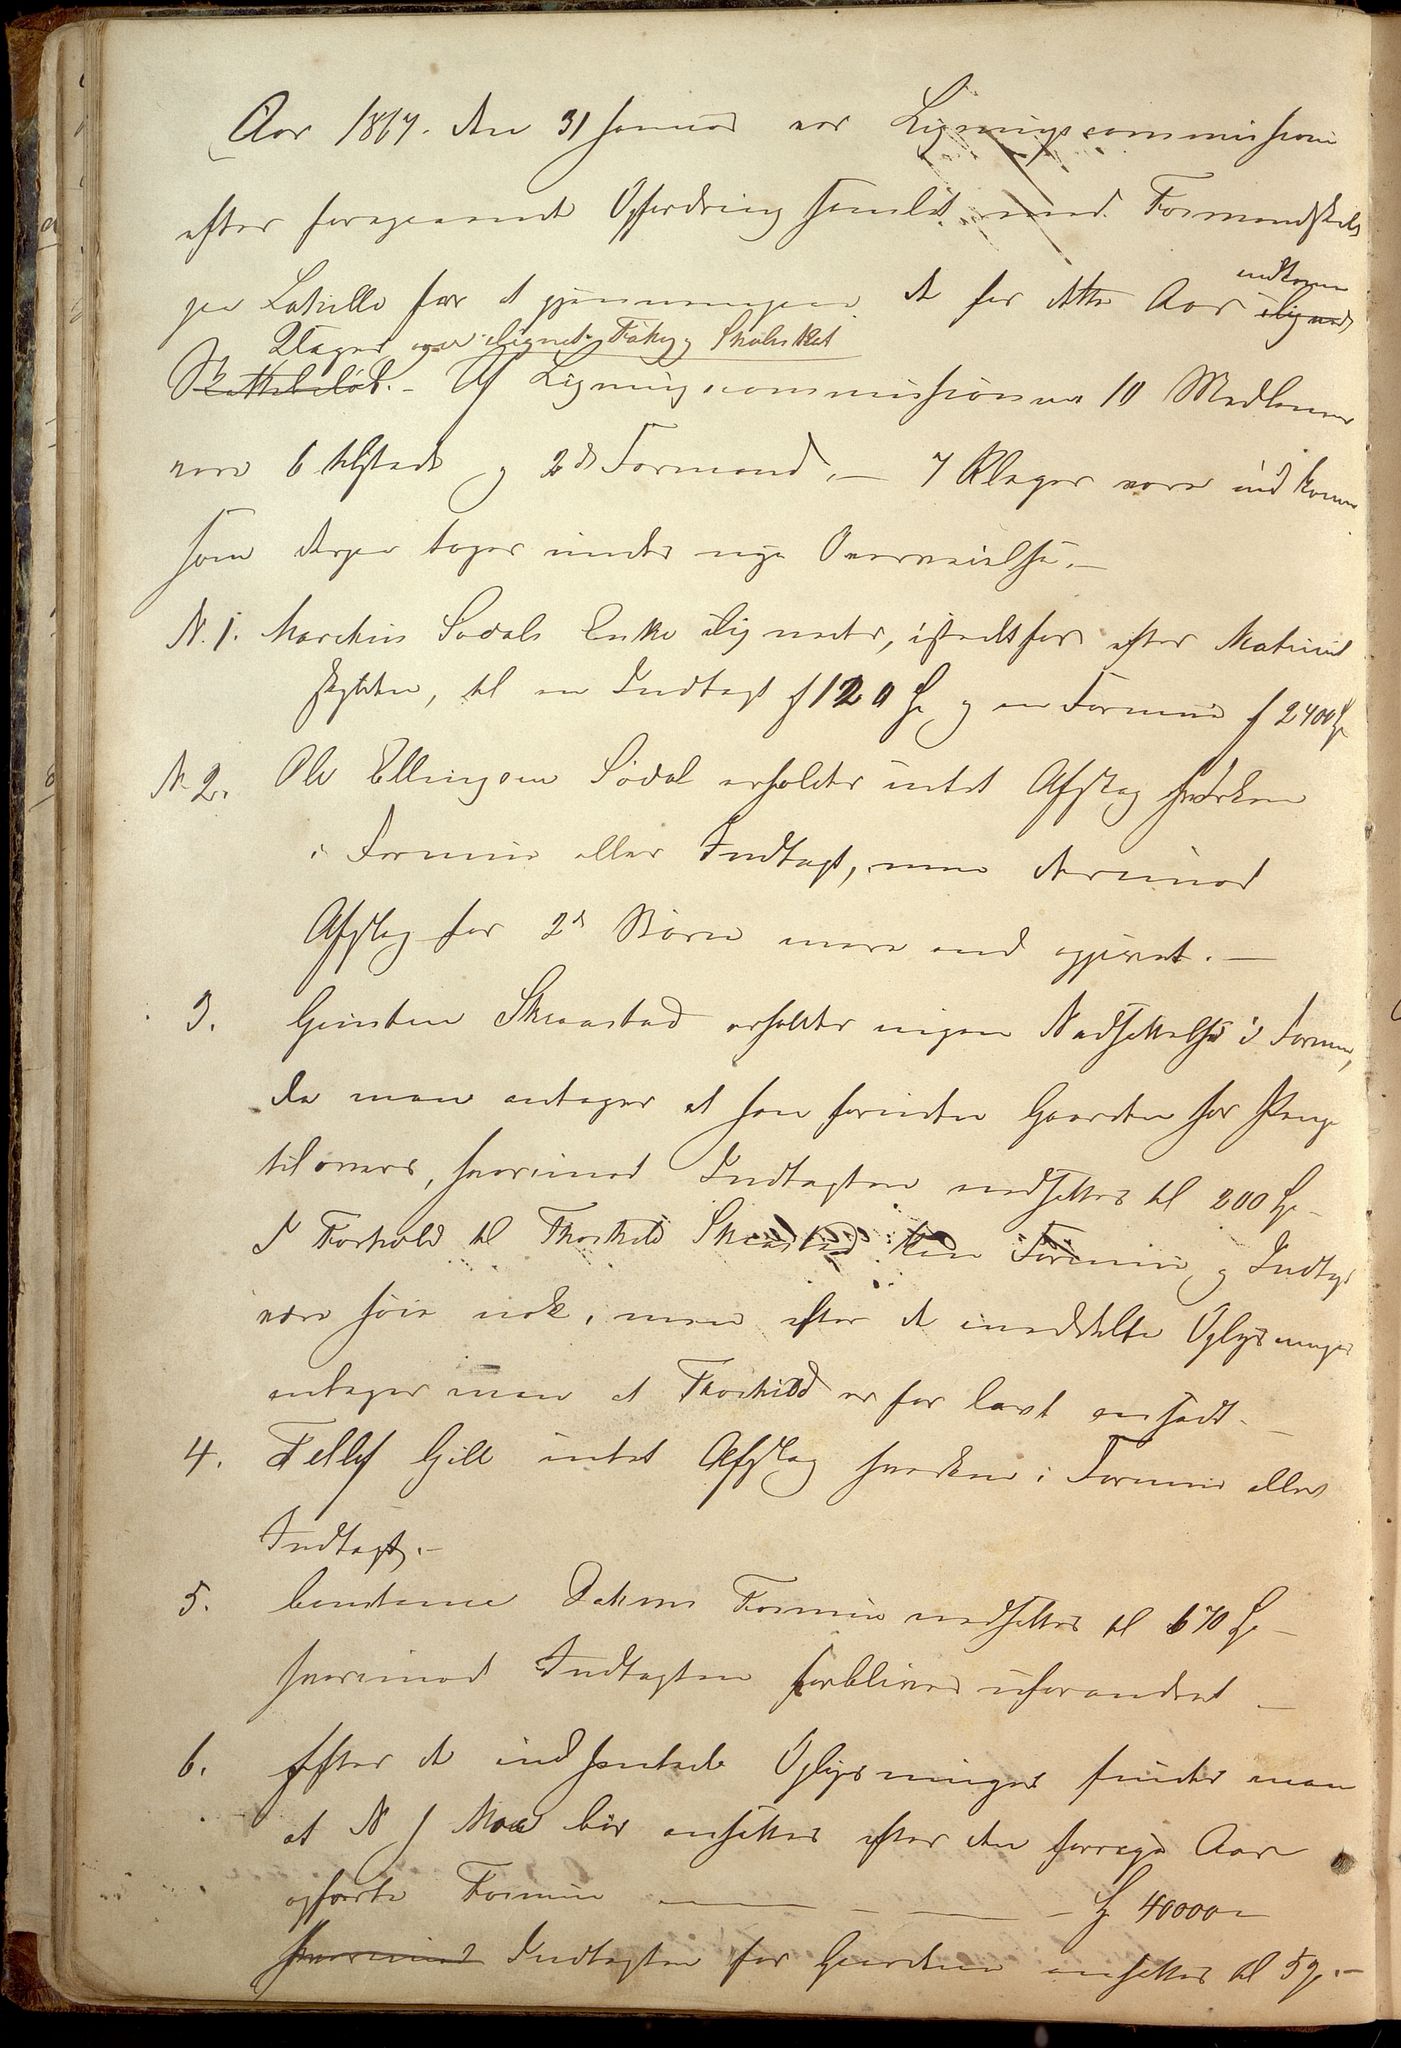 Aar 1867. den 31 Januar var Ligningscommissionen
efter foregaaende Opfordring samlet med Formandskabet
paa Lahelle for at gjennemgaae de for dette Aar indkomne ilignede
Klager over ilignet Fattig og Skoleskat
Skattebeløb. – Af Ligningscommissionens 10 Medlemmer
vare 6 tilstede og 2de Formænd. – 7 Klager vare indkomne
som derpaa toges under nye Overveielse. –
N. 1. Sødals Enke ilignedes, istedetfor efter Matrikul
skylden, til en Indtægt af 120 Spd og en Formue af 2400 Spd
N. 2. Ole Ellingsen Sødal erholder intet Afslag hverken
i Formue eller Indtægt, men derimod
Afslag for 2de Børn mere end opgivet. –
3. Gunsten Skraastad erholder ingen Nedsættelse i Formue,
da man antager at han foruden Gaarden har Penge
tilovers, hvorimod Indtægten nedsættes til 200 Spd –
I Forhold til Thorkild Skraastad kan Formue og Indtægt
være høie nok, men efter de meddelte Oplysninger
antager man at Thorkild er for lavt ansadt. –
4. Tellef Gill intet Afslag hverken i Formue eller
Indtægt. –
5. Formue nedsættes til 670 Spd –
hvorimod Indtægten forbliver uforandret –
6. Efter de indhentede Oplysninger finder man
at N J Moe bør ansættes efter den forrige Aar
opførte Formue – – – Spd 4000 –
hvorimod Indtægten for Gaarden ansættes til 5 –